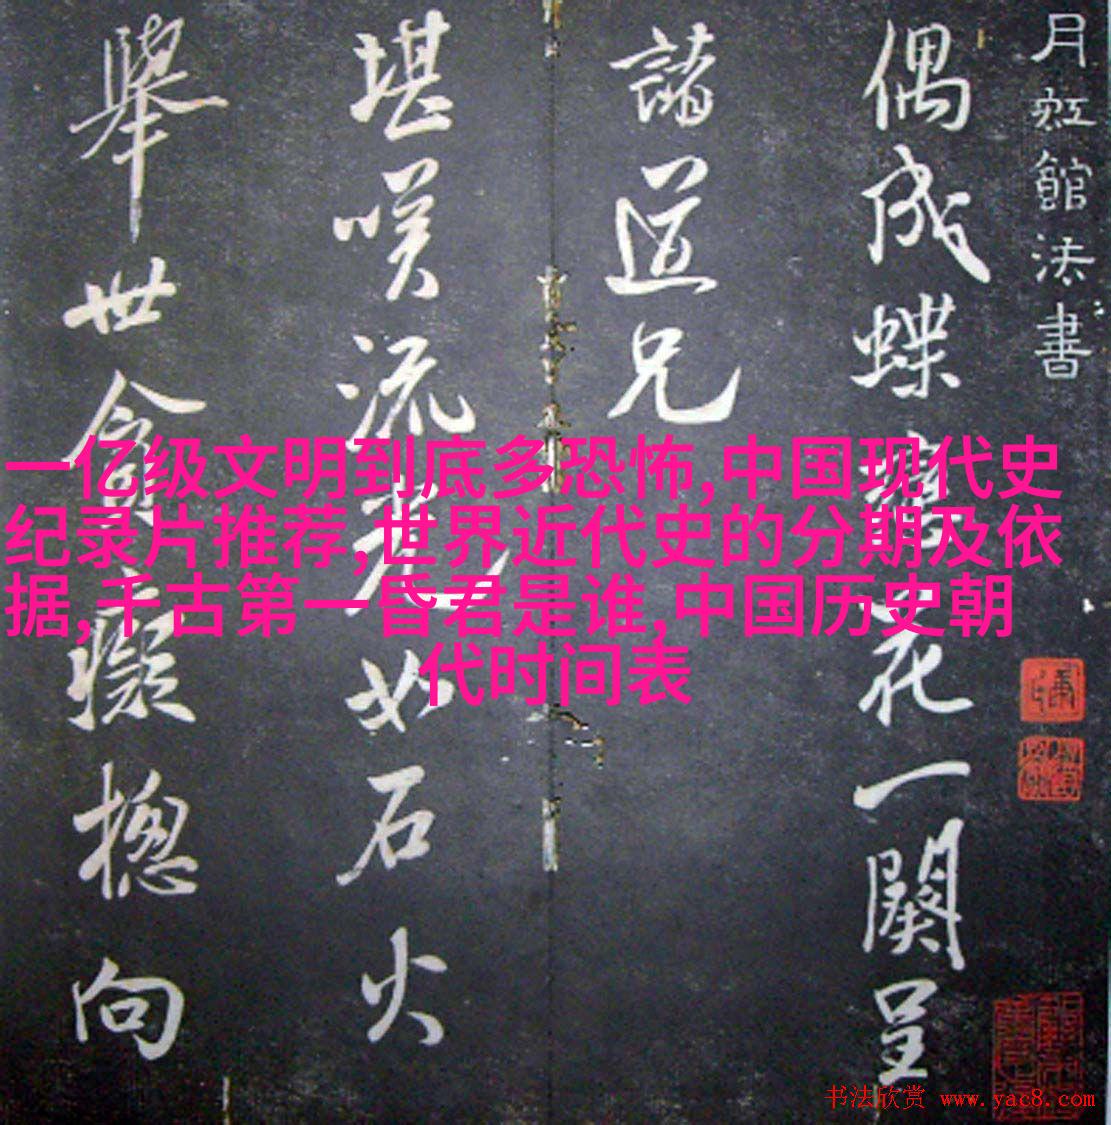 月虹館法書
偶成蝶戀花一闋呈
諸道兄
堪嘆流光如石火
舉世貪癡揔向
一亿级文明到底多恐怖,中国现代史
纪录片推荐,世界近代史的分期及依
据,千古第一昏君是谁,中国历史朝
代时间表
书法欣赏 www.yac8.com